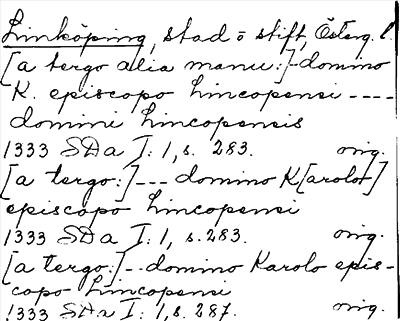 Linköping, stad o stift, Österg. l.
[a tergo alia manu:]-domino
K. episcopo lincopensi ----
domini lincopensis
1333 SDa I: 1, s. 283. orig.
[a tergo:]--- domino K[arolo]
episcopo lincopensi
1333 SDa I: 1, s. 283. orig.
[a tergo:]--domino Karolo epis-
copo lincopensi
1333 SDa I: 1, s. 287. orig.